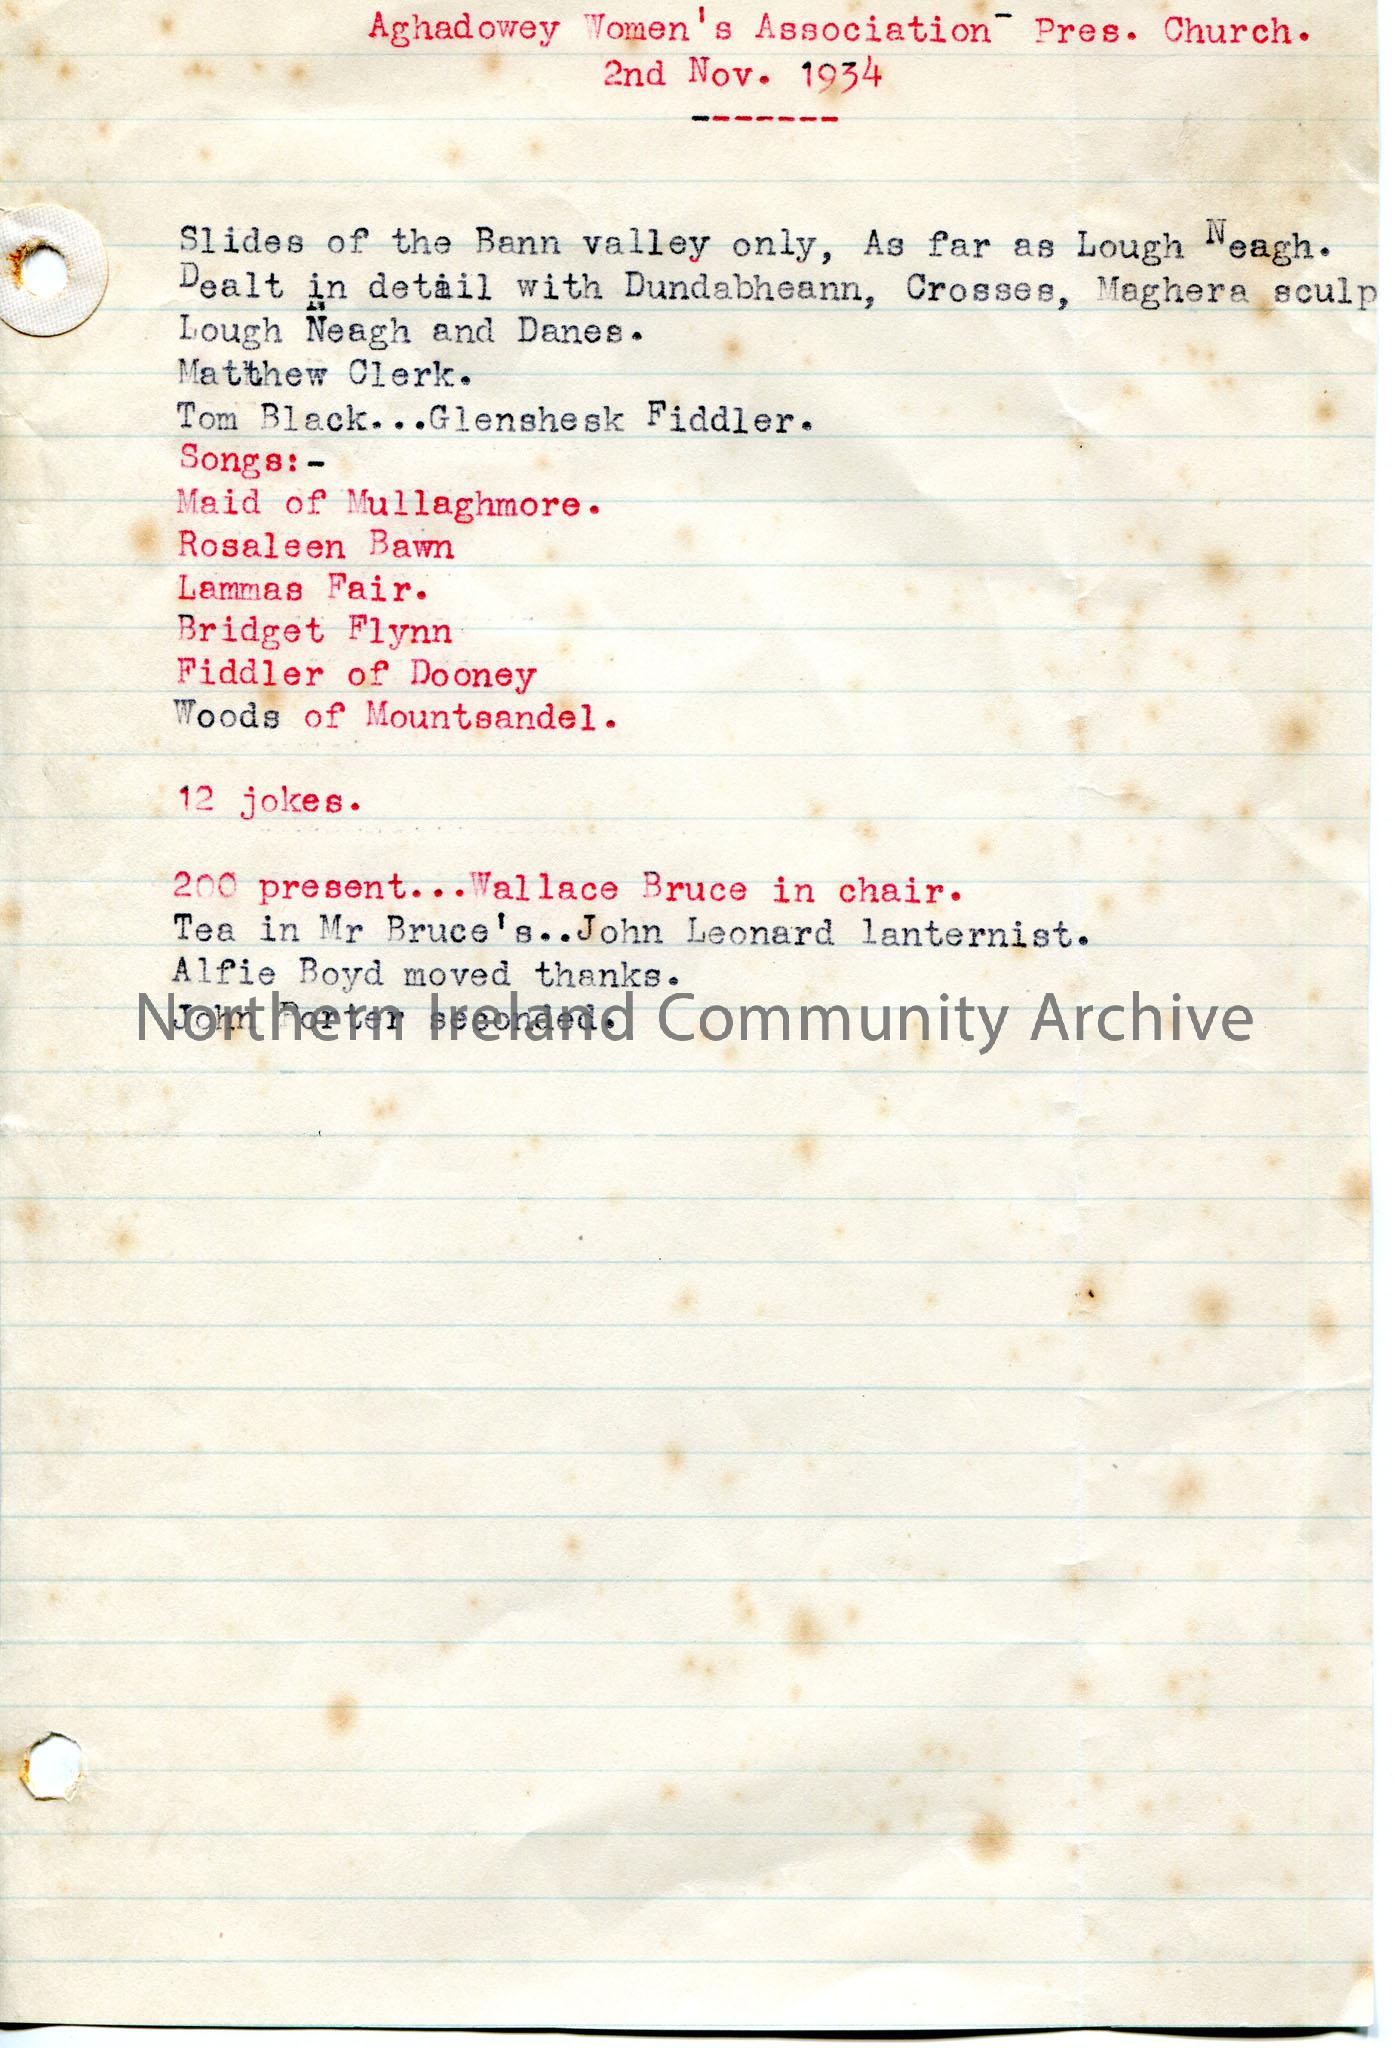 Aghadowey Women's Association- Pres. Church.
2nd Nov. 1934
-------
Slides of the Bann valley only, As far as Lough Neagh.
Dealt in detail with Dundabheann, Crosses, Maghera sculp
Lough Neagh and Danes.
Matthew Clerk.
Tom Black...Glenshesk Fiddler.
Songs:-
Maid of Mullaghmore.
Rosaleen Bawn
Lammas Fair.
Bridget Flynn
Fiddler of Dooney
Woods of Mountsandel.
12 jokes.
200 present...Wallace Bruce in chair.
Tea in Mr Bruce's..John Leonard lanternist.
Alfie Boyd moved thanks.
John Porter seconded.
Northern Ireland Community Archive